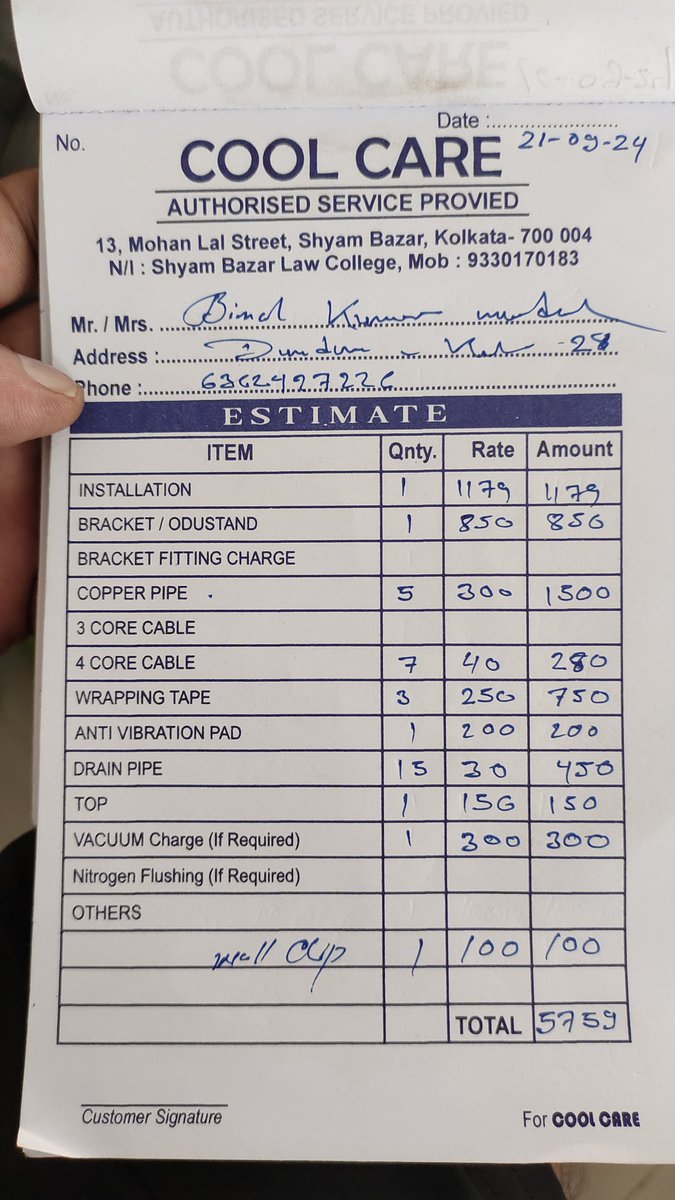 Date :........................
No.
21-09-24
COOL CARE
AUTHORISED SERVICE PROVIED
13, Mohan Lal Street, Shyam Bazar, Kolkata- 700 004
N/I : Shyam Bazar Law College, Mob : 9330170183
Mr. / Mrs. Bimal Kumar
Address : Dumdum - 28
Phone : 6362497226
ESTIMATE
ITEM Qnty. Rate Amount
INSTALLATION 1 1179 1179
BRACKET / ODUSTAND 1 850 850
BRACKET FITTING CHARGE
COPPER PIPE 5 300 1500
3 CORE CABLE
4 CORE CABLE 7 40 280
WRAPPING TAPE 3 250 750
ANTI VIBRATION PAD 1 200 200
DRAIN PIPE 15 30 450
TOP 1 150 150
VACUUM Charge (If Required) 1 300 300
Nitrogen Flushing (If Required)
OTHERS
wall Clip 1 100 100
TOTAL 5759
Customer Signature For COOL CARE